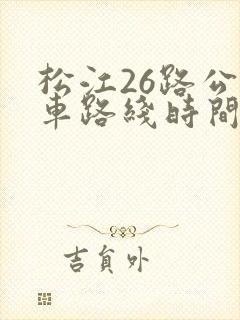 松江26路公
車路綫時間
吉負外